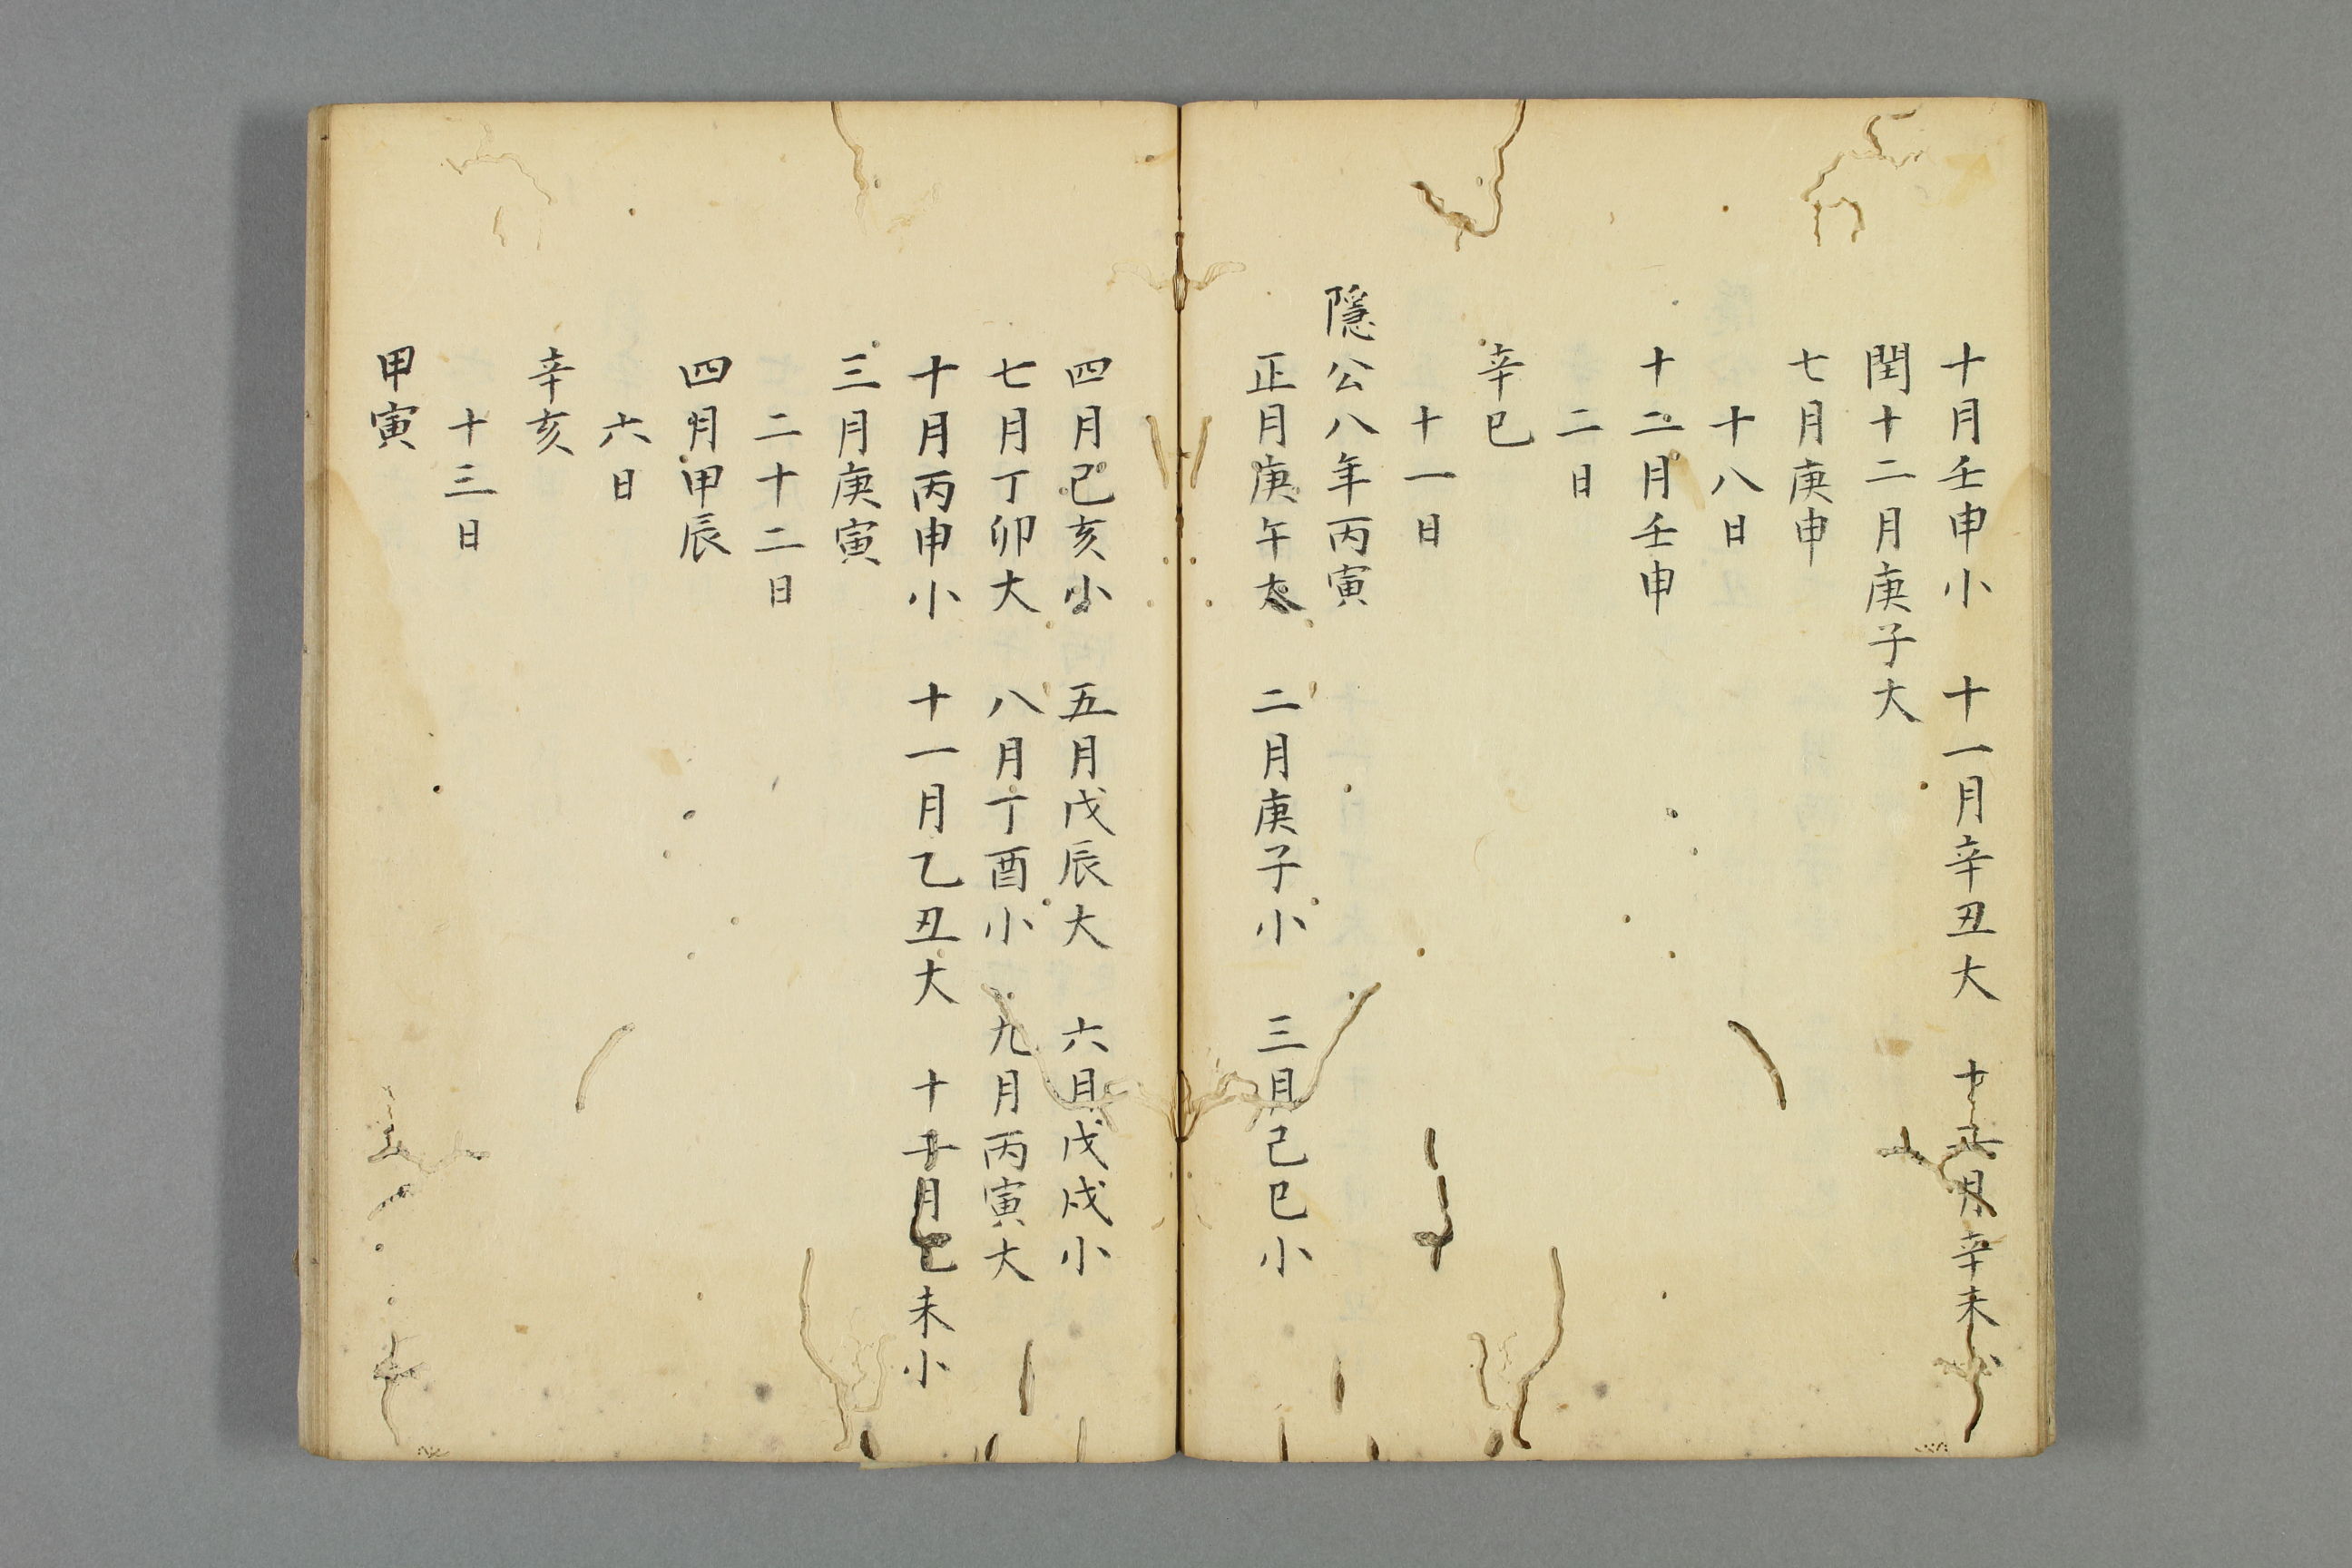 十月壬申小　十一月辛丑大　十二月辛未小
閏十二月庚子大
七月庚申
十八日
十二月壬申
二日
辛巳
十一日
隱公八年丙寅
正月庚午大　二月庚子小　三月己巳小
四月己亥小　五月戊辰大　六月戊戌小
七月丁卯大　八月丁酉小　九月丙寅大
十月丙申小　十一月乙丑大　十二月己未小
三月庚寅
二十二日
四月甲辰
六日
辛亥
十三日
甲寅